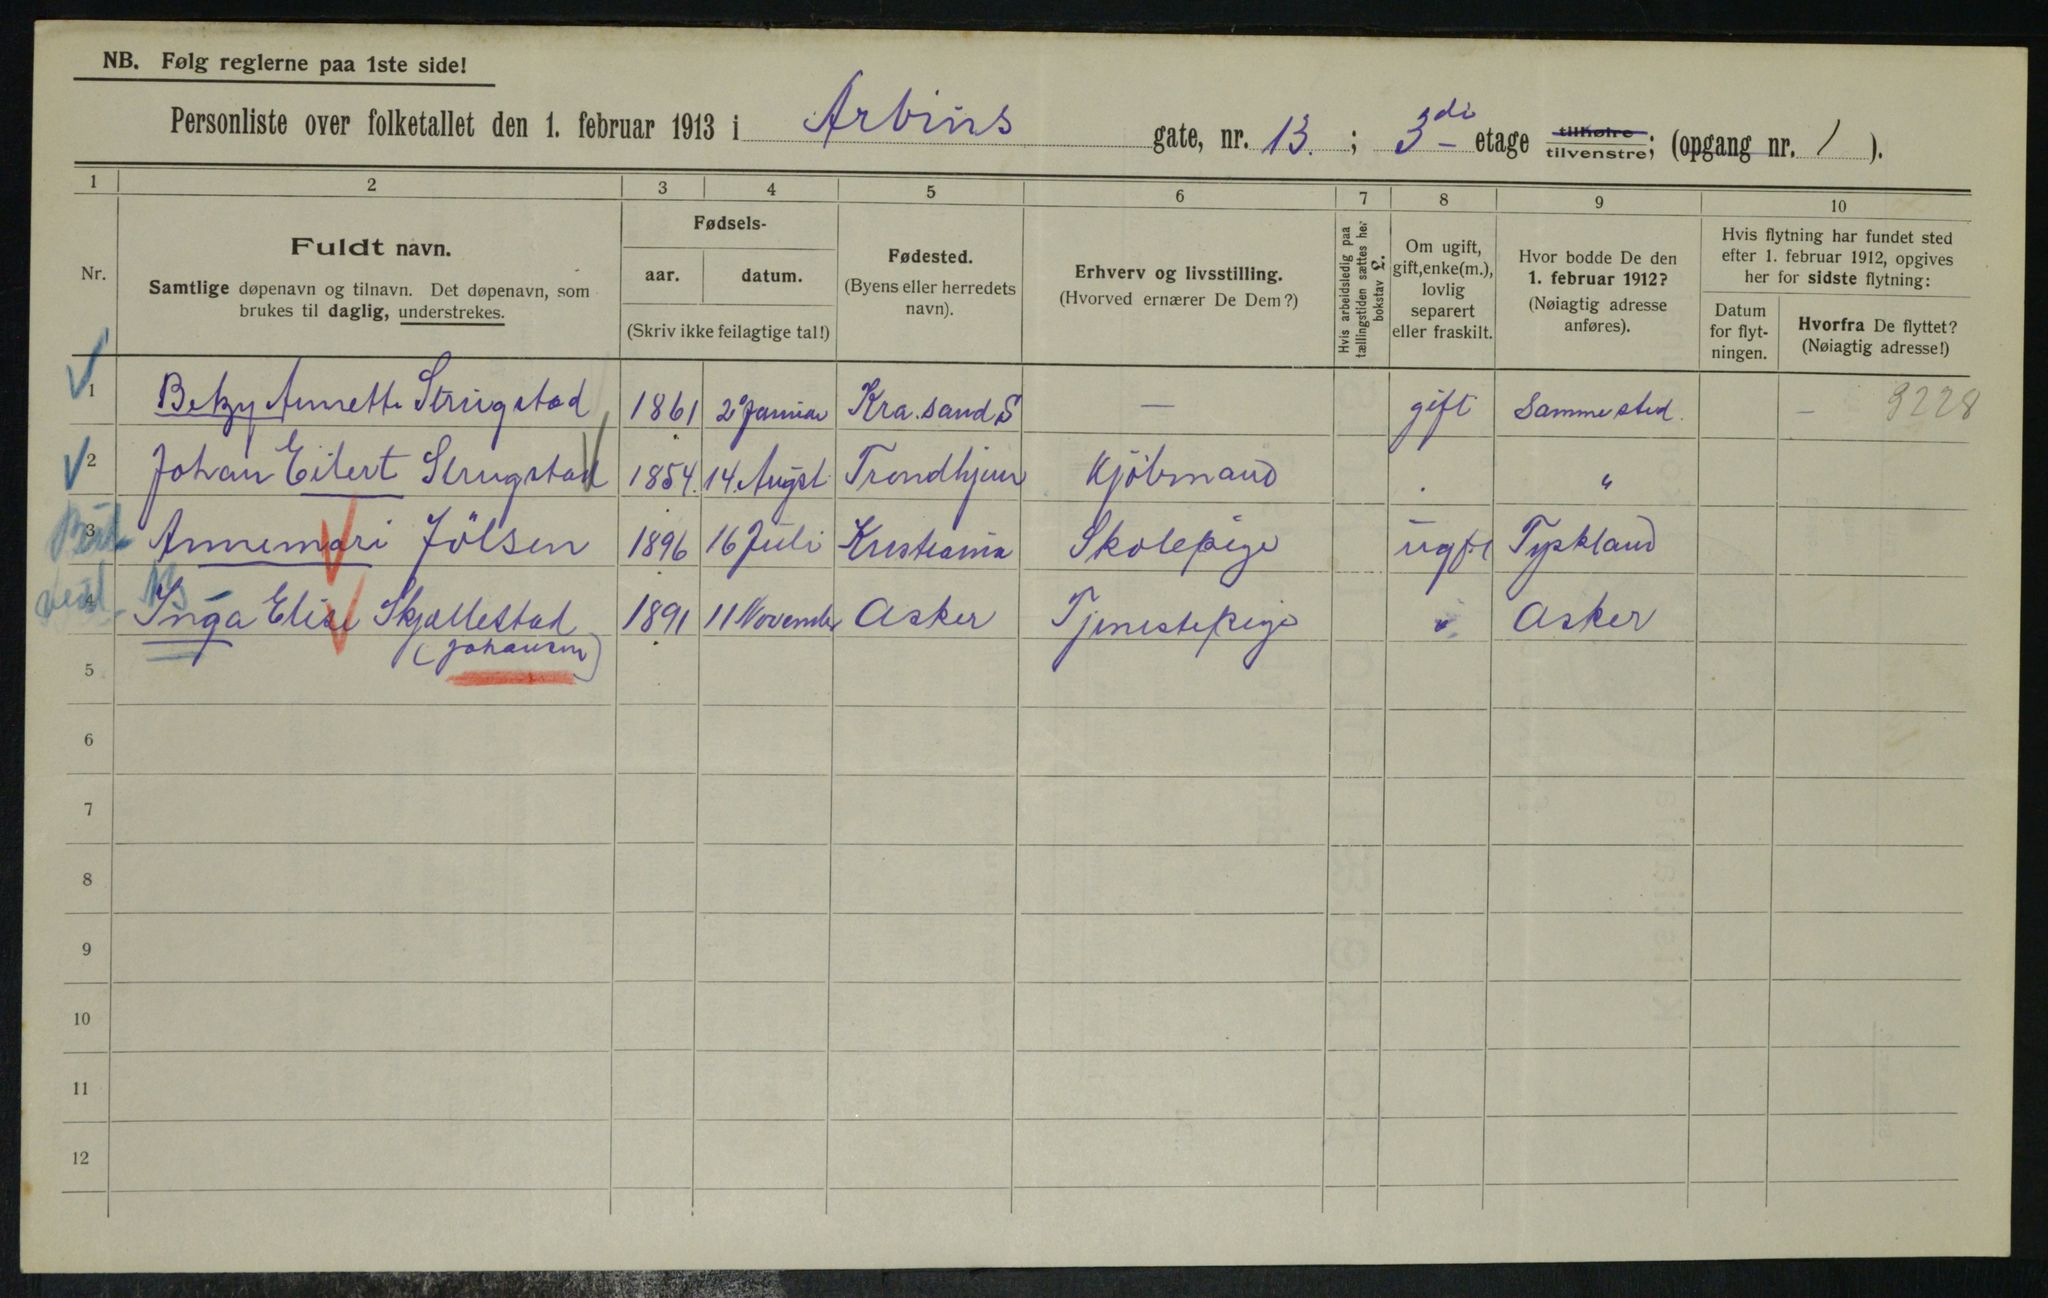 NB. Følg reglerne paa 1ste side!
Personliste over folketallet den 1. februar 1913 i Arbins gate, nr. 13. ; 3di etage tilhøire tilvenstre; (opgang nr. 1 ).
1 2 3 4 5 6 7 8 9 10
Nr.
Fuldt navn.
Samtlige døpenavn og tilnavn. Det døpenavn, som
brukes til daglig, understrekes.
Fødsels-
aar. datum.
(Skriv ikke feilagtige tal!)
Fødested.
(Byens eller herredets
navn).
Erhverv og livsstilling.
(Hvorved ernærer De Dem?)
Hvis arbeidsledig paa
tællingstiden sættes her
bokstav L.
Om ugift,
gift, enke(m.),
lovlig
separert
eller fraskilt.
Hvor bodde De den
1. februar 1912?
(Nøiagtig adresse
anføres).
Hvis flytning har fundet sted
efter 1. februar 1912, opgives
her for sidste flytning:
Datum
for flyt-
ningen.
Hvorfra De flyttet?
(Nøiagtig adresse!)
1 Betzy Annette Strugstad 1861 2 Januar Kra.sand S — gift Samme sted. – 9228
2 Johan Eilert Strugstad 1854. 14. Augst. Trondhjem Kjøbmand . "
3 Annemari Jölsen 1896 16 Juli Kristiania Skolepige ugft Tyskland
4 Inga Elise Skjællestad 1891 11 November Asker Tjenestepige " Asker
(Johansen)
5
6
7
8
9
10
11
12